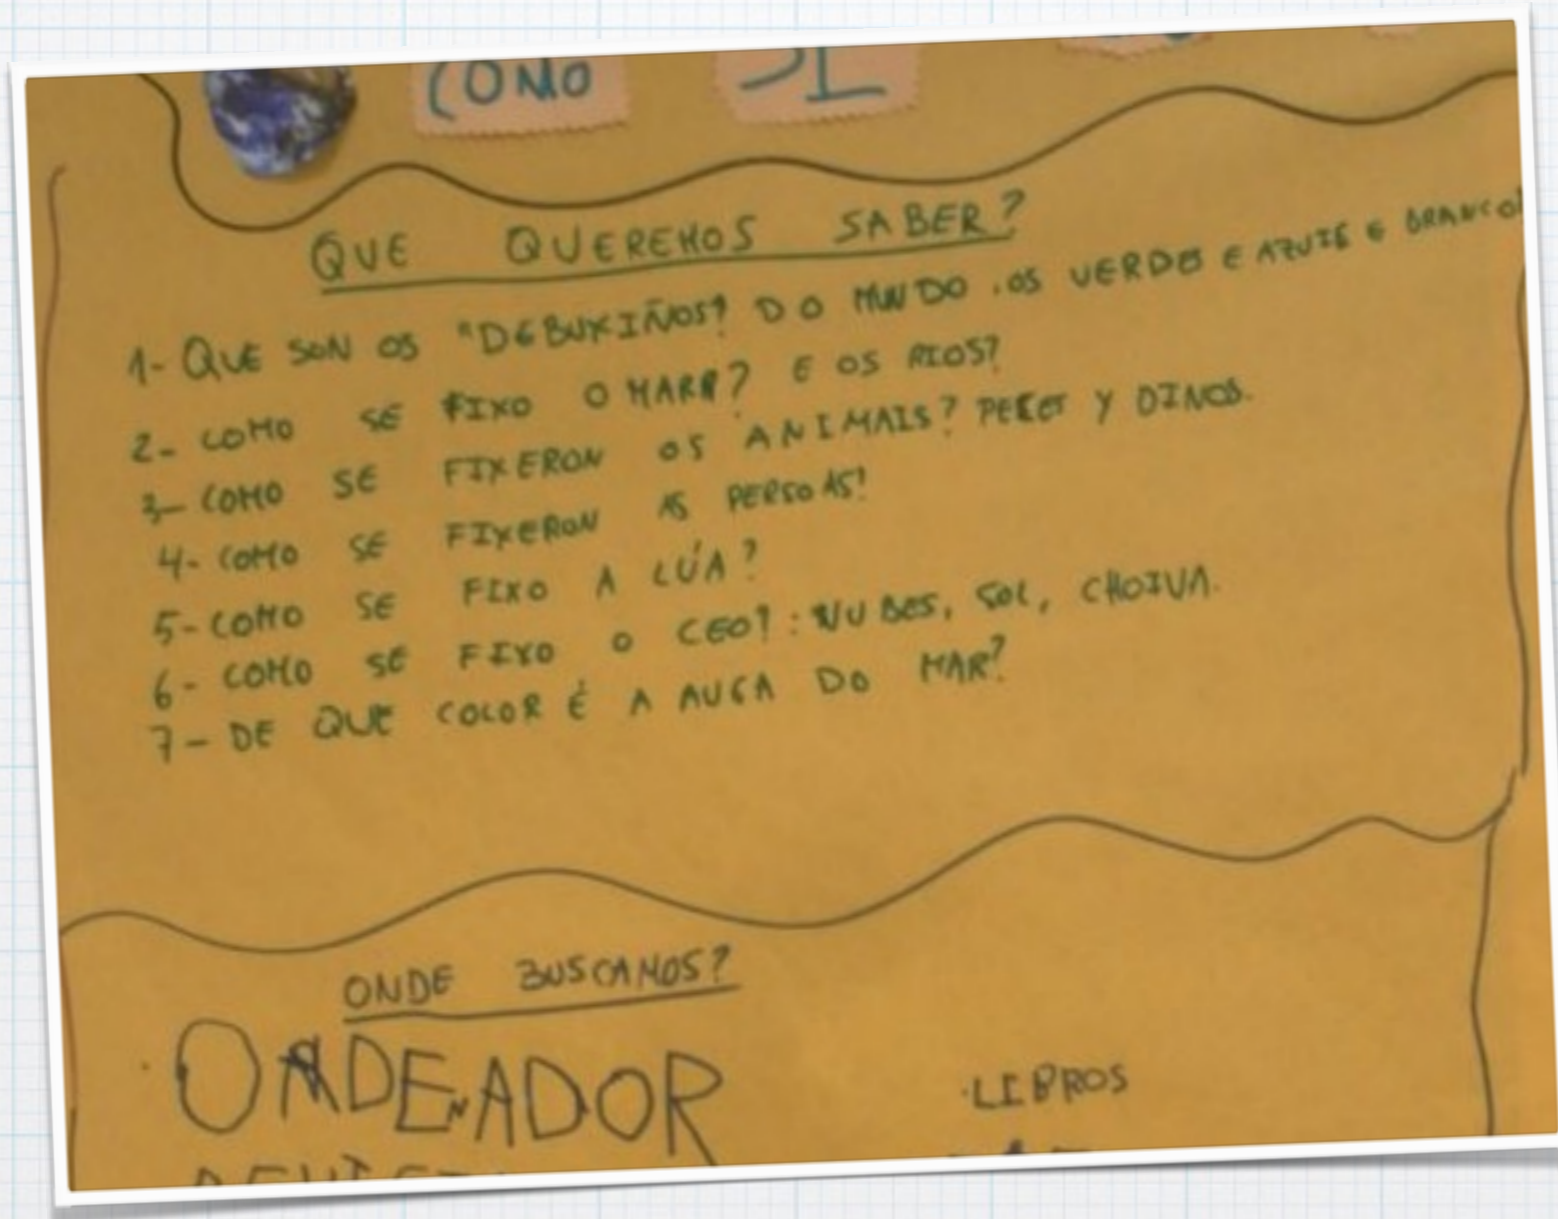 COMO SE
QUE QUEREMOS SABER?
1- QUE SON OS "DEBUXIÑOS? DO MUNDO. OS VERDES E AZUIS E BRANCOS
2- COMO SE FIXO O MAR? E OS RIOS?
3- COMO SE FIXERON OS ANIMAIS? PECES Y DINOS.
4- COMO SE FIXERON AS PERSOAS?
5- COMO SE FIXO A LÚA?
6- COMO SE FIXO O CEO?: NUBES, SOL, CHOIVA.
7- DE QUE COLOR É A AUGA DO MAR?
ONDE BUSCAMOS?
· ORDENADOR
· LIBROS